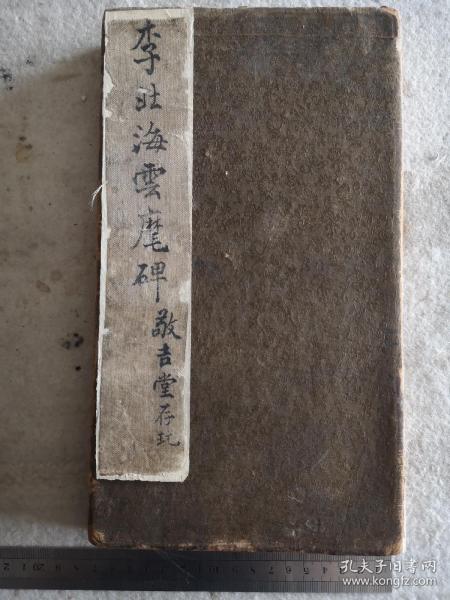 李北海雲麾碑
敬吉堂存玩
孔夫子旧书网
www.kongfz.com